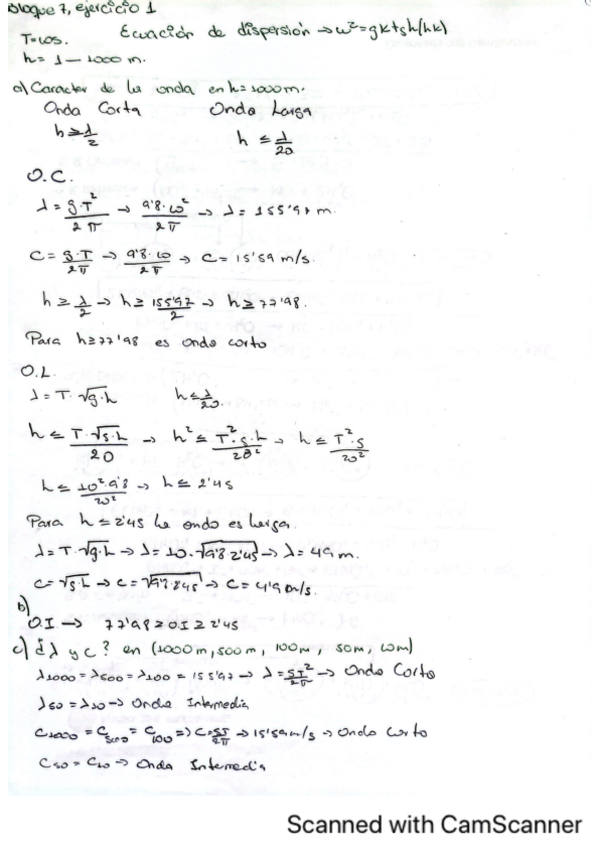 Bloque 7, ejercicio 1
T=10s. Ecuación de dispersión → ω²=gktgh(hk)
h= 1 — 1000 m.
a) Caracter de la onda en h=1000m.
Onda Corta Onda Larga
h≥λ/2 h ≤ λ/20
O.C.
λ = g·T²/2π → 9'8·10²/2π → λ = 155'97 m.
C = g·T/2π → 9'8·10/2π → C = 15'59 m/s.
h ≥ λ/2 → h ≥ 155'97/2 → h ≥ 77'98.
Para h≥77'98 es onda corta
O.L.
λ = T·√g·h h≤λ/20
h ≤ T·√g·h/20 → h² ≤ T²·g·h/20² → h ≤ T²·g/20²
h ≤ 10²·9'8/20² → h ≤ 2'45
Para h ≤ 2'45 la onda es larga.
λ = T·√g·h → λ = 10·√9'8·2'45 → λ = 49 m.
C = √g·h → C = √9'8·2'45 → C = 4'9 m/s.
b)
O.I → 77'98 ≥ O.I ≥ 2'45
c) ¿λ y c? en (1000m, 500m, 100m, 50m, 10m)
λ1000 = λ500 = λ100 = 155'97 → λ = gT²/2π → Onda Corta
λ50 = λ10 → Onda Intermedia
C1000 = C500 = C100 => C = gT/2π → 15'59m/s → Onda Corta
C50 = C10 → Onda Intermedia
Scanned with CamScanner